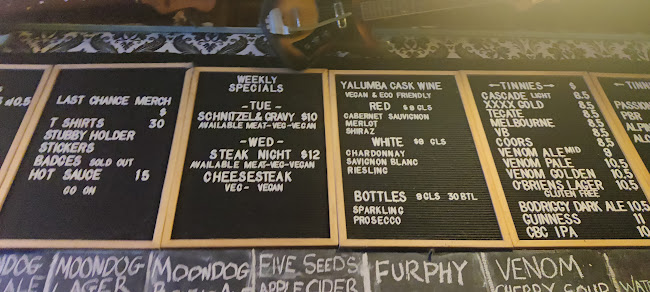 LAST CHANCE MERCH
$
T SHIRTS 30
STUBBY HOLDER
STICKERS
BADGES SOLD OUT
HOT SAUCE 15
GO ON
WEEKLY
SPECIALS
- TUE -
SCHNITZEL & GRAVY $10
AVAILABLE MEAT-VEG-VEGAN
- WED -
STEAK NIGHT $12
AVAILABLE MEAT-VEG-VEGAN
CHEESESTEAK
VEG - VEGAN
YALUMBA CASK WINE
VEGAN & ECO FRIENDLY
RED $8 GLS
CABERNET SAUVIGNON
MERLOT
SHIRAZ
WHITE $8 GLS
CHARDONNAY
SAVIGNON BLANC
RIESLING
BOTTLES 9 GLS 30 BTL
SPARKLING
PROSECCO
- TINNIES - $
CASCADE LIGHT 8.5
XXXX GOLD 8.5
TECATE 8.5
MELBOURNE 8.5
VB 8.5
COORS 8.5
VENOM ALE MID 9
VENOM PALE 10.5
VENOM GOLDEN 10.5
O'BRIENS LAGER 10.5
GLUTEN FREE
BODRIGGY DARK ALE 10.5
GUINNESS 11
CBC IPA 10.5
- TINNIES
PASSION
PBR
ALPIN
ALP
MOONDOG
LAGER
MOONDOG
FIVE SEEDS
APPLE CIDER
FURPHY
VENOM
CHERRY SOUR